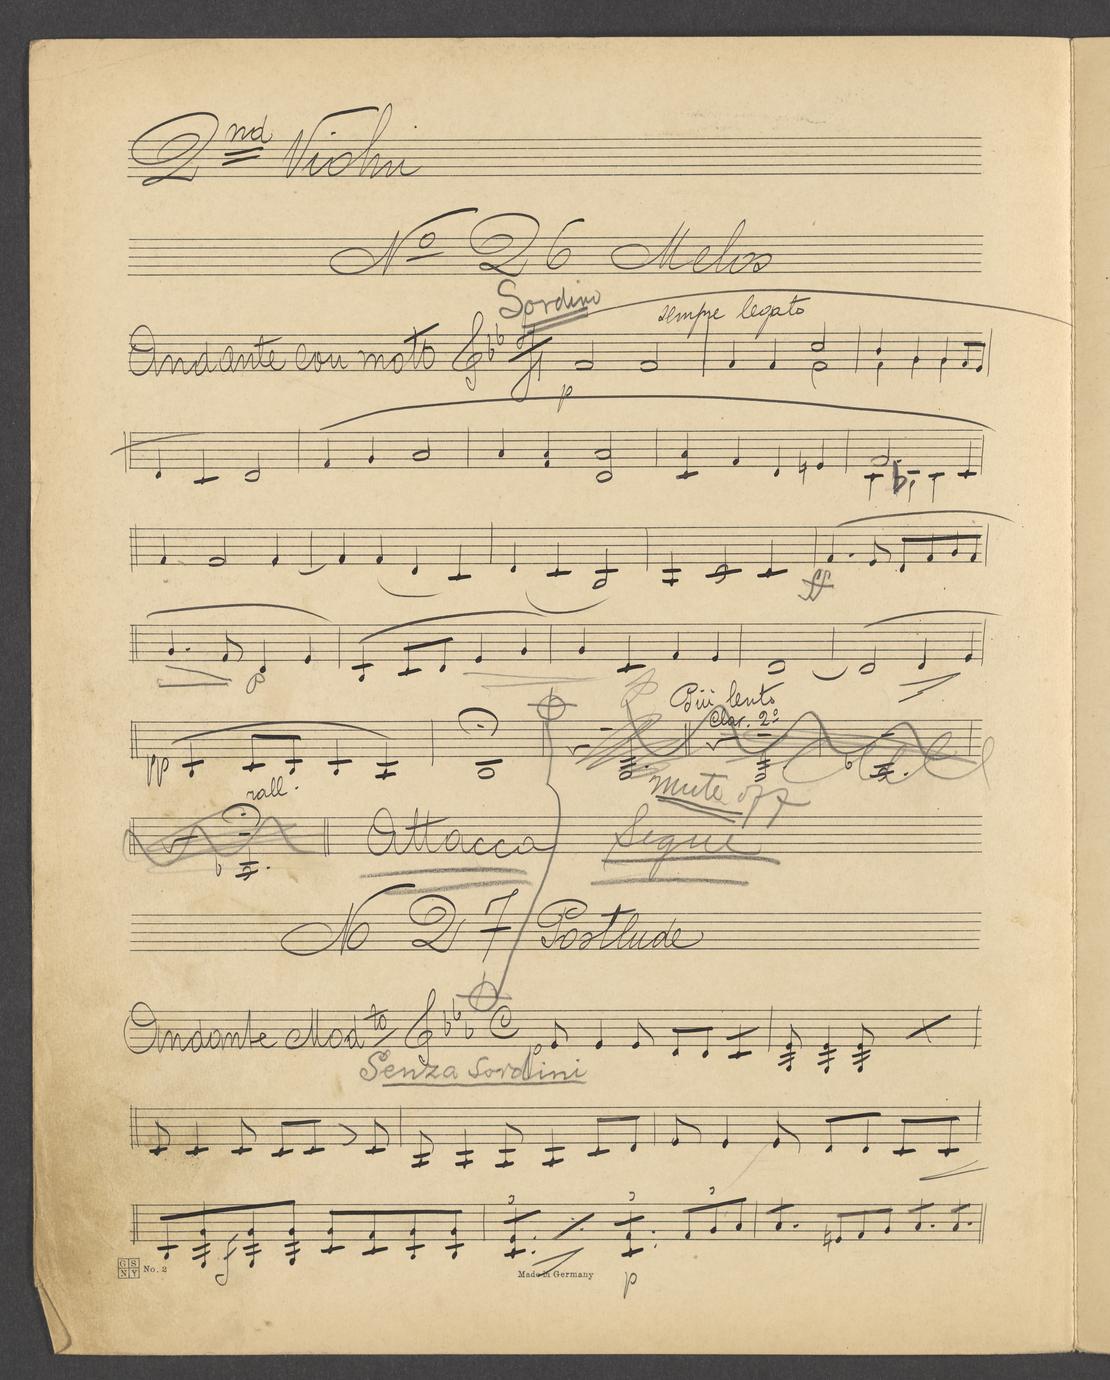 2nd Violin
No 26 Melos
Sordino
sempre legato
Andante con moto
p
ff
p
Più lento
Clar. 2º
pp
rall.
mute off
Attacca Segue
No 27 Postlude
Andante Modto C
p
Senza Sordini
3 3 3
f
p
GSNY No. 2
Made in Germany